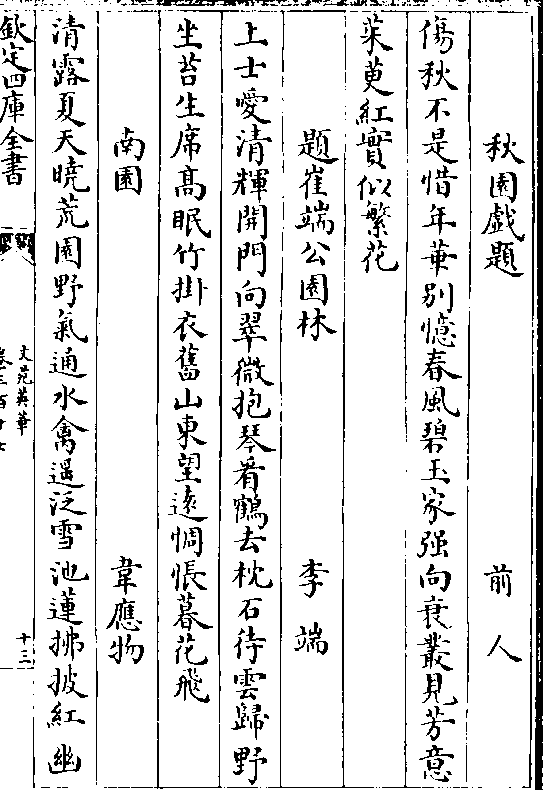 秋園戲題　前人
傷秋不是惜年華别憶春風碧玉家强向衰叢見芳意
茱萸紅實似繁花
題崔端公園林　李端
上士愛清輝開門向翠微抱琴看鶴去枕石待雲歸野
坐苔生席髙眠竹掛衣舊山東望遠惆悵暮花飛
南園　韋應物
清露夏天曉荒園野氣通水禽遥泛雪池蓮拂披紅幽
欽定四庫全書
文苑英華
十三